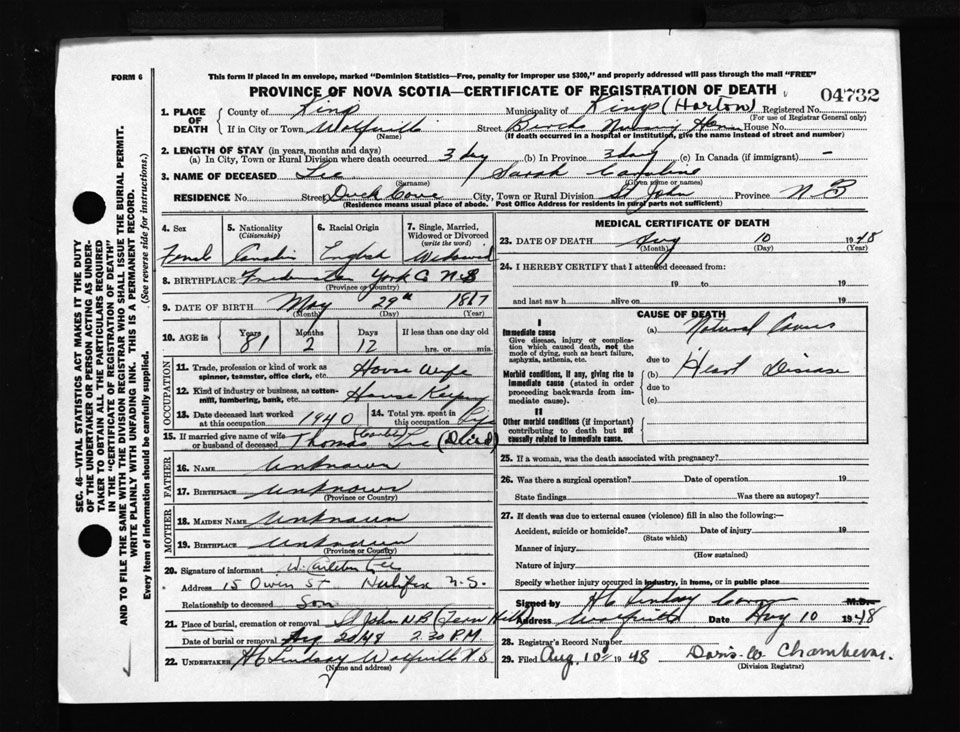 FORM 6
This form if placed in an envelope, marked "Dominion Statistics—Free, penalty for improper use $300," and properly addressed will pass through the mail "FREE"
PROVINCE OF NOVA SCOTIA—CERTIFICATE OF REGISTRATION OF DEATH
04732
1. PLACE OF DEATH
County of Kings Municipality of Kings (Horton) Registered No.
(For use of Registrar General only)
If in City or Town Wolfville Street Nursing Home House No.
(Name) (If death occurred in a hospital or institution, give the name instead of street and number)
2. LENGTH OF STAY (in years, months and days)
(a) In City, Town or Rural Division where death occurred 3 day (b) In Province 3 day (c) In Canada (if immigrant) -
3. NAME OF DECEASED Lee Sarah Caroline
(Surname) (Given name or names)
RESIDENCE No. Street Duck Cove City, Town or Rural Division St John Province N B
(Residence means usual place of abode. Post Office Address for residents in rural parts not sufficient)
4. Sex
Femal
5. Nationality (Citizenship)
Canadin
6. Racial Origin
English
7. Single, Married, Widowed or Divorced (write the word)
Widowed
8. BIRTHPLACE Fredericton York C N B
(Province or Country)
9. DATE OF BIRTH May 29th 1867
(Month) (Day) (Year)
10. AGE in Years 81 Months 2 Days 12 If less than one day old
hrs. or min.
OCCUPATION
11. Trade, profession or kind of work as spinner, teamster, office clerk, etc. House Wife
12. Kind of industry or business, as cotton-mill, lumbering, bank, etc. House Keeping
13. Date deceased last worked at this occupation 1940 14. Total yrs. spent in this occupation Life
15. If married give name of wife or husband of deceased Thomas Lee (Died)
FATHER
16. NAME Unknown
17. BIRTHPLACE Unknown
(Province or Country)
MOTHER
18. MAIDEN NAME Unknown
19. BIRTHPLACE Unknown
(Province or Country)
20. Signature of informant W. Carleton Lee
Address 15 Owen St Halifax N.S.
Relationship to deceased Son
21. Place of burial, cremation or removal St John N B (Fern Hill)
Date of burial or removal Aug 1948 2.30 P.M.
22. UNDERTAKER H C Lindsay Wolfville N S
(Name and address)
MEDICAL CERTIFICATE OF DEATH
23. DATE OF DEATH Aug 10 1948
(Month) (Day) (Year)
24. I HEREBY CERTIFY that I attended deceased from:
19 to 19
and last saw h alive on 19
CAUSE OF DEATH
I
Immediate cause
Give disease, injury or complication which caused death, not the mode of dying, such as heart failure, asphyxia, asthenia, etc.
(a) Natural Causes
due to
Morbid conditions, if any, giving rise to immediate cause (stated in order proceeding backwards from immediate cause).
(b) Heart Disease
due to
(c)
II
Other morbid conditions (if important) contributing to death but not causally related to immediate cause.
25. If a woman, was the death associated with pregnancy?
26. Was there a surgical operation? Date of operation 19
State findings Was there an autopsy?
27. If death was due to external causes (violence) fill in also the following:—
Accident, suicide or homicide? Date of injury 19
(State which)
Manner of injury
(How sustained)
Nature of injury
Specify whether injury occurred in industry, in home, or in public place
Signed by H C Lindsay Coroner M.D.
Address Wolfville Date Aug 10 1948
28. Registrar's Record Number
29. Filed Aug. 10 1948 Doris W Chambers.
(Division Registrar)
SEC. 46—VITAL STATISTICS ACT MAKES IT THE DUTY
OF THE UNDERTAKER OR PERSON ACTING AS UNDER-
TAKER TO OBTAIN ALL THE PARTICULARS REQUIRED
IN THE "CERTIFICATE OF REGISTRATION OF DEATH"
AND TO FILE THE SAME WITH THE DIVISION REGISTRAR WHO SHALL ISSUE THE BURIAL PERMIT.
WRITE PLAINLY WITH UNFADING INK. THIS IS A PERMANENT RECORD.
Every item of information should be carefully supplied. (See reverse side for instructions.)